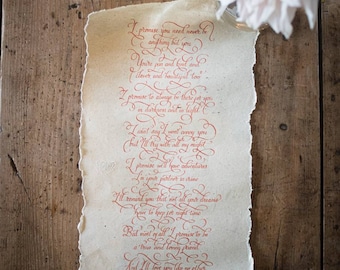 I promise you need never be
anything but you
You're fun and kind and
clever and beautiful too
I promise to always be there for you
in darkness and in light
I can't say I won't annoy you
but I'll try with all my might
I promise we'll have adventures
I'm your partner in crime
I'll remind you that not all your dreams
have to keep for night time
But most of all I promise to be
a true and loving friend
And I'll love you like no other